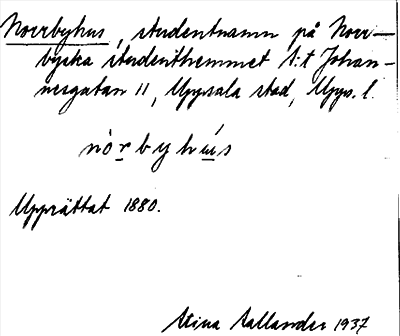 Norrbyhus, studentnamn på Norr-
byska studenthemmet S:t Johan-
nesgatan 11, Uppsala stad, Upps. l.
nòrbyhús
Upprättat 1880.
Stina Hallander 1937